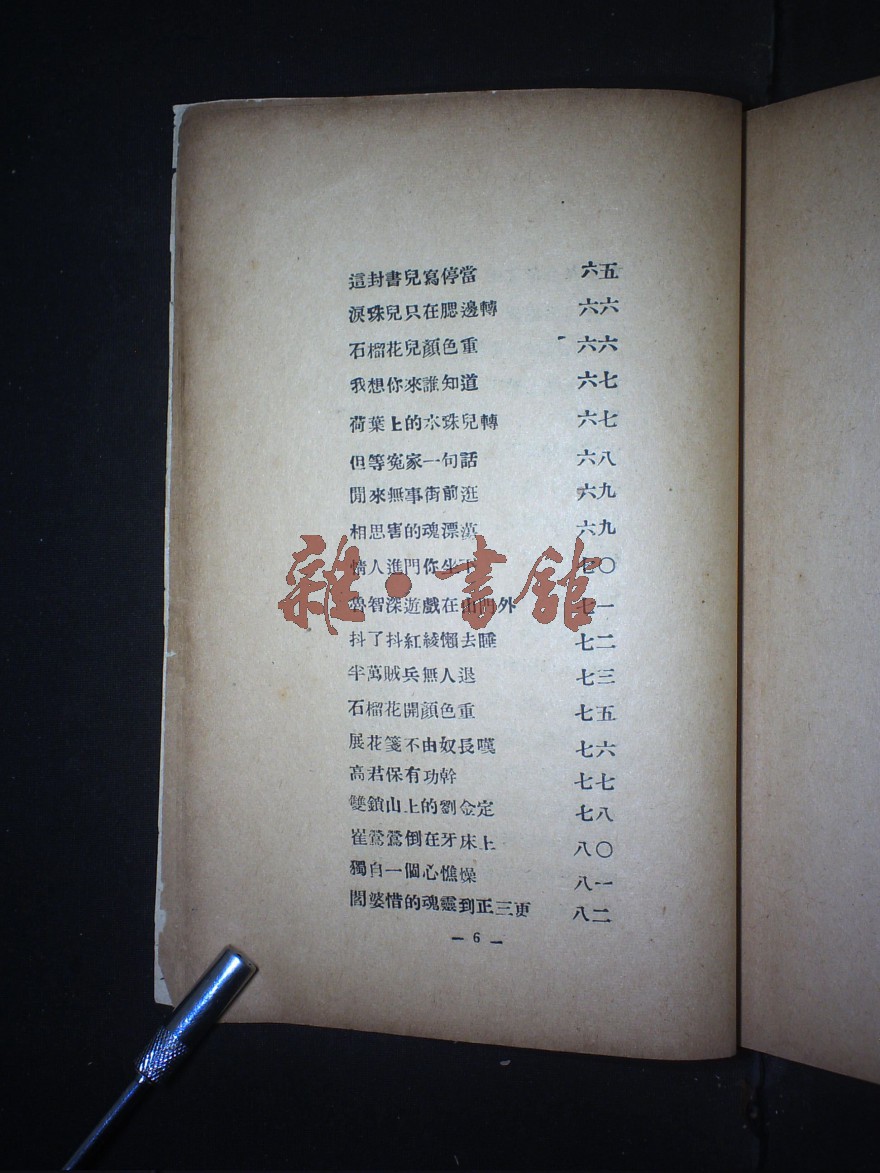 這封書兒寫停當 六五
淚珠兒只在腮邊轉 六六
石榴花兒顏色重 六六
我想你來誰知道 六七
荷葉上的水珠兒轉 六七
但等冤家一句話 六八
閒來無事街前逛 六九
相思害的魂漂蕩 六九
情人進門你坐下 七〇
魯智深遊戲在山門外 七一
抖了抖紅綾懶去睡 七二
半萬賊兵無人退 七三
石榴花開顏色重 七五
展花箋不由奴長嘆 七六
高君保有功幹 七七
雙鎖山上的劉金定 七八
崔鶯鶯倒在牙床上 八〇
獨自一個心憔燥 八一
閻婆惜的魂靈到正三更 八二
— 6 —
雜·書館